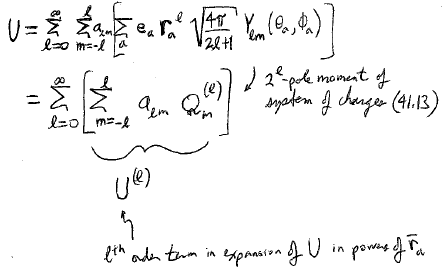 U = ∑_{l=0}^{∞} ∑_{m=-l}^{l} a_{lm} [ ∑_a e_a r_a^l √(4π/(2l+1)) Y_{lm}(θ_a, φ_a) ]
= ∑_{l=0}^{∞} [ ∑_{m=-l}^{l} a_{lm} Q_m^{(l)} ] 2^l-pole moment of
system of charges (41.13)
U^{(l)}
l^{th} order term in expansion of U in powers of r̄_a